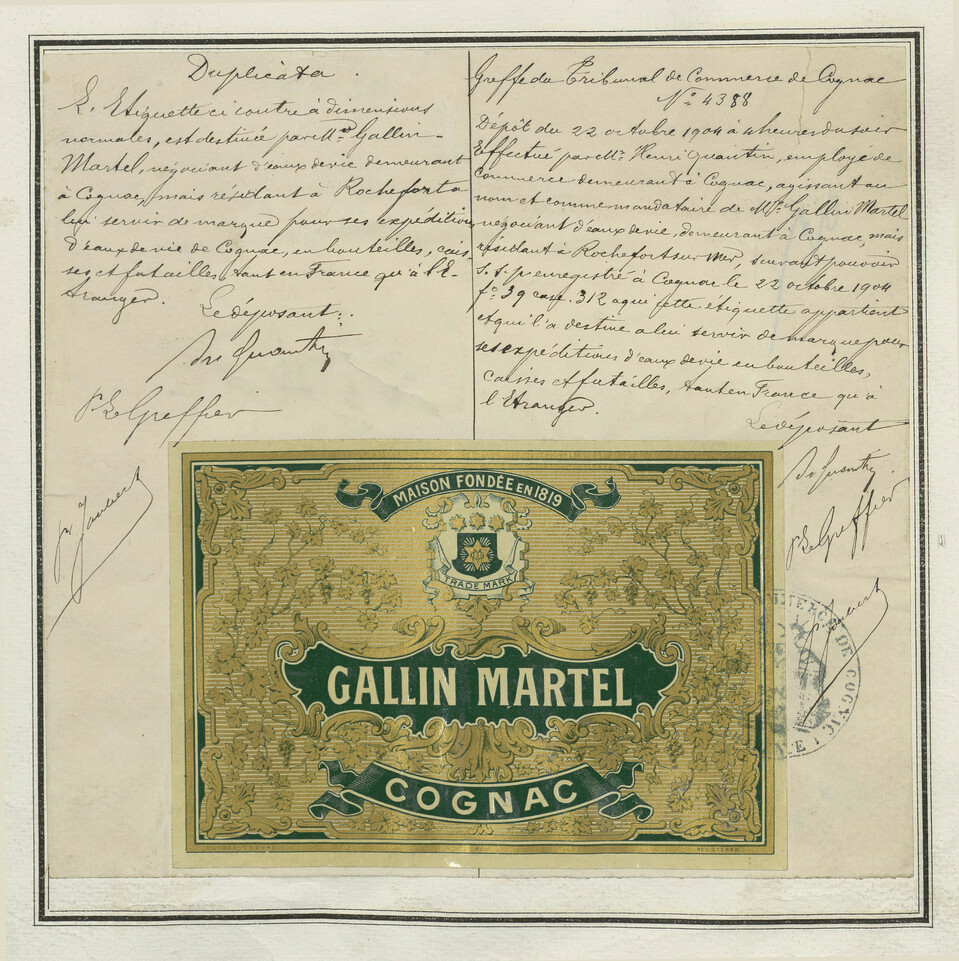 Duplicata.
L'Etiquette ci contre à dimensions
normales, est destinée par Mr. Gallin-
Martel, négociant d'eaux de vie demeurant
à Cognac, mais résidant à Rochefort a
lui servir de marque pour ses expéditions
d'eaux de vie de Cognac, en bouteilles, cais-
ses et futailles, tant en France qu'à l'E-
tranger.
Le déposant:
Pr Le Greffier
Greffe du Tribunal de Commerce de Cognac
No 4388
Dépôt du 22 octobre 1904 à 4 heures du soir
Effectué par Mr. Henri Quantin, employé de
Commerce demeurant à Cognac, agissant au
nom et comme mandataire de Mr. Gallin Martel
négociant d'eaux de vie, demeurant à Cognac, mais
résidant à Rochefort sur Mer, suivant pouvoir
s. s. p. enregistré à Cognac le 22 octobre 1904
fo 39 case. 312 a qui cette étiquette appartient
et qui l'a destine a lui servir de marque pour
ses expéditions d'eaux de vie en bouteilles,
caisses et futailles, tant en France qu'à
l'Etranger.
Le déposant
Pr Le Greffier
MAISON FONDÉE EN 1819
TRADE MARK
GALLIN MARTEL
COGNAC
REGISTERED
DE COGNAC